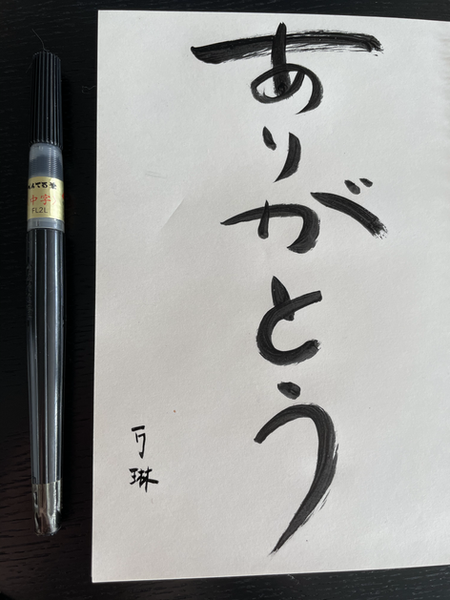 ありがとう
琳
ぺんてる筆
中字
FL2L